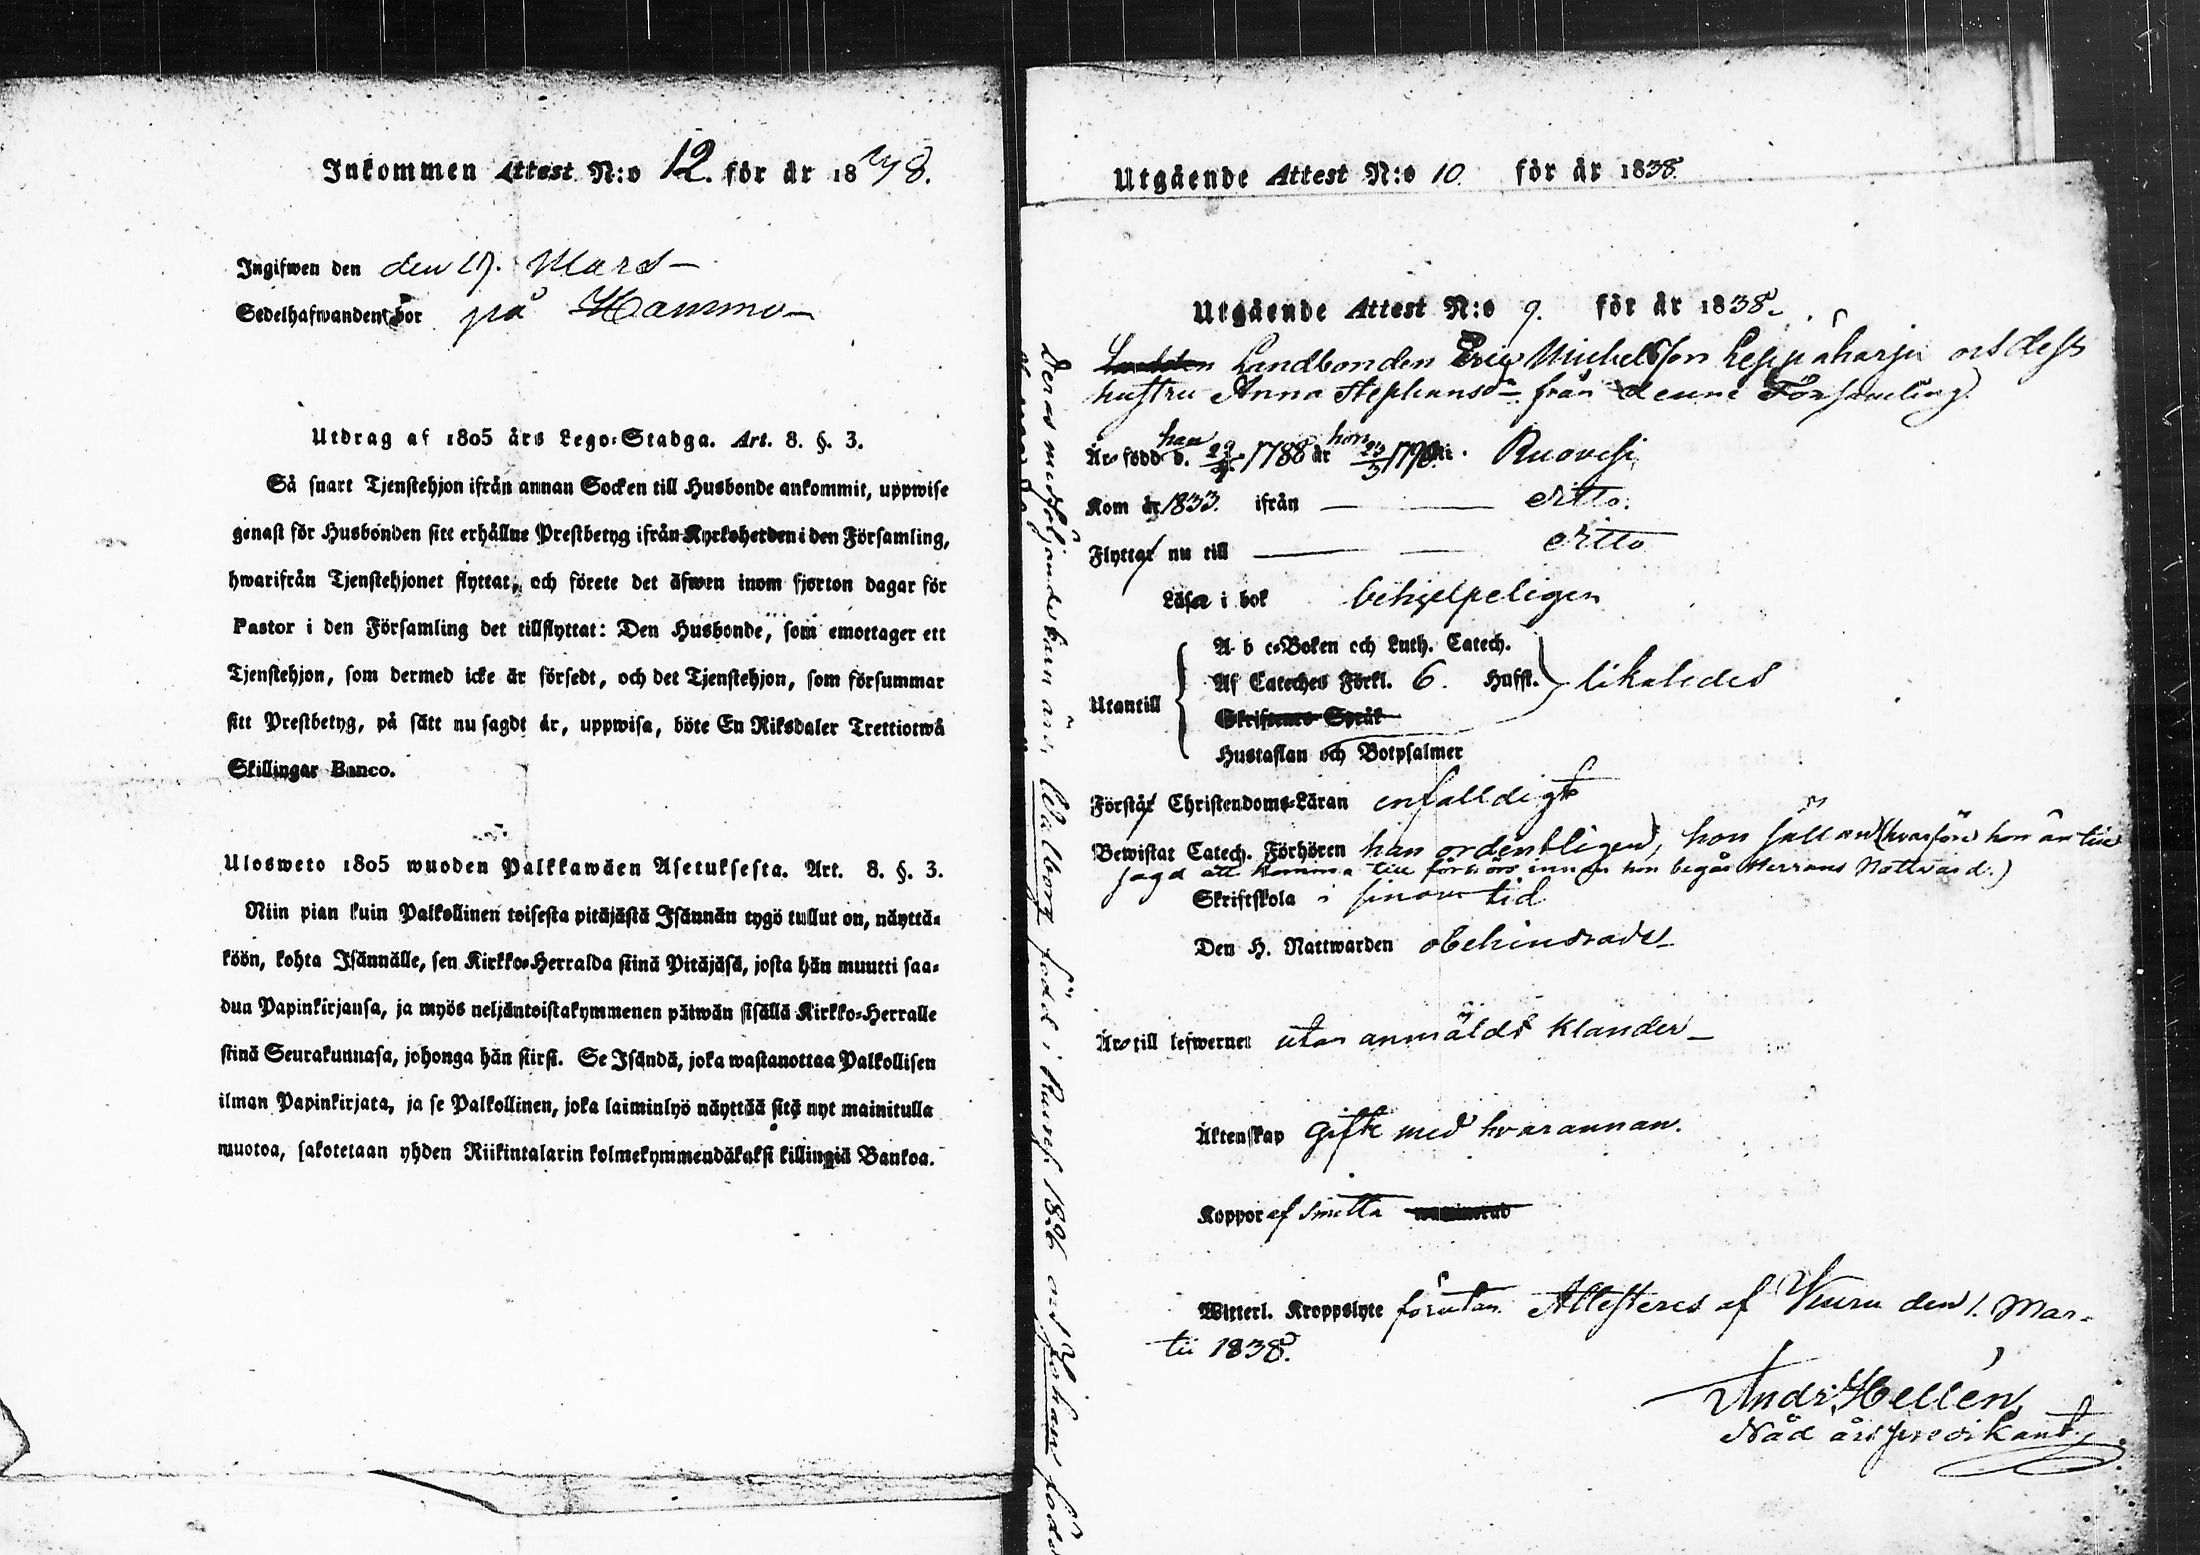 Inkommen Attest N:o 12. för år 1838.
Ingifwen den den 17. Mars
Sedelhafwanden bor på Hammo
Utdrag af 1805 års Lego-Stadga. Art. 8. §. 3.
Så snart Tjenstehjon ifrån annan Socken till Husbonde ankommit, uppwise
genast för Husbonden sitt erhållne Prestbetyg ifrån Kyrkoherden i den Församling,
hwarifrån Tjenstehjonet flyttat, och förete det äfwen inom fjorton dagar för
Pastor i den Församling det tillflyttat: Den Husbonde, som emottager ett
Tjenstehjon, som dermed icke är försedt, och det Tjenstehjon, som försummar
sitt Prestbetyg, på sätt nu sagdt är, uppwisa, böte En Riksdaler Trettiotwå
Skillingar Banco.
Ulosweto 1805 wuoden Palkkawäen Asetuksesta. Art. 8. §. 3.
Niin pian kuin Palkollinen toisesta pitäjästä Isännän tygö tullut on, näyttä-
köön, kohta Isännälle, sen Kirkko-Herralda siinä Pitäjäsä, josta hän muutti saa-
dun Papinkirjansa, ja myös neljäntoistakymmenen päiwän sisällä Kirkko-Herralle
siinä Seurakunnasa, johonga hän siirsi. Se Isändä, joka wastanottaa Palkollisen
ilman Papinkirjata, ja se Palkollinen, joka laiminlyö näyttää sitä nyt mainitulla
muotoa, sakotetaan yhden Riikintalarin kolmekymmendäkaksi killingiä Bankoa.
Utgående Attest N:o 10. för år 1838.
Utgående Attest N:o 9. för år 1838.
Landbonden Eric Michelsson Leppäharju och dess
hustru Anna Stephansdr från denne Församling.
Äro född d. han 29/9 1788 år hon 23/3 i Ruovesi
Kom år 1833. ifrån — — ditto.
Flyttar nu till — — ditto
Läsa i bok behjelpeligen
Utantill
A b c-Boken och Luth. Catech.
Af Cateches Förkl. 6. Hufst. likaledes
Skriftenes Språk
Hustaflan och Botpsalmer
Förstår Christendoms-Läran enfalldigt
Bewistat Catech. Förhören han ordentligen, hon sällan (hvarföre hon är till
sagd att komma till förhörs innan hon begår Herrans Nattvard.)
Skriftskola i sinom tid
Den H. Nattwarden obehindrade
Äro till lefwernet utan anmäldt klander
Äktenskap gifte med hvarannan.
Koppor af smitta
Witterl. Kroppslyte förutan Attesteres af Kuru den 1. Mar-
tii 1838.
Andr. Hellén
Nåd års predikant
Deras medföljande barn äro Wallborg född i Ruovesi 1826 och Johans född